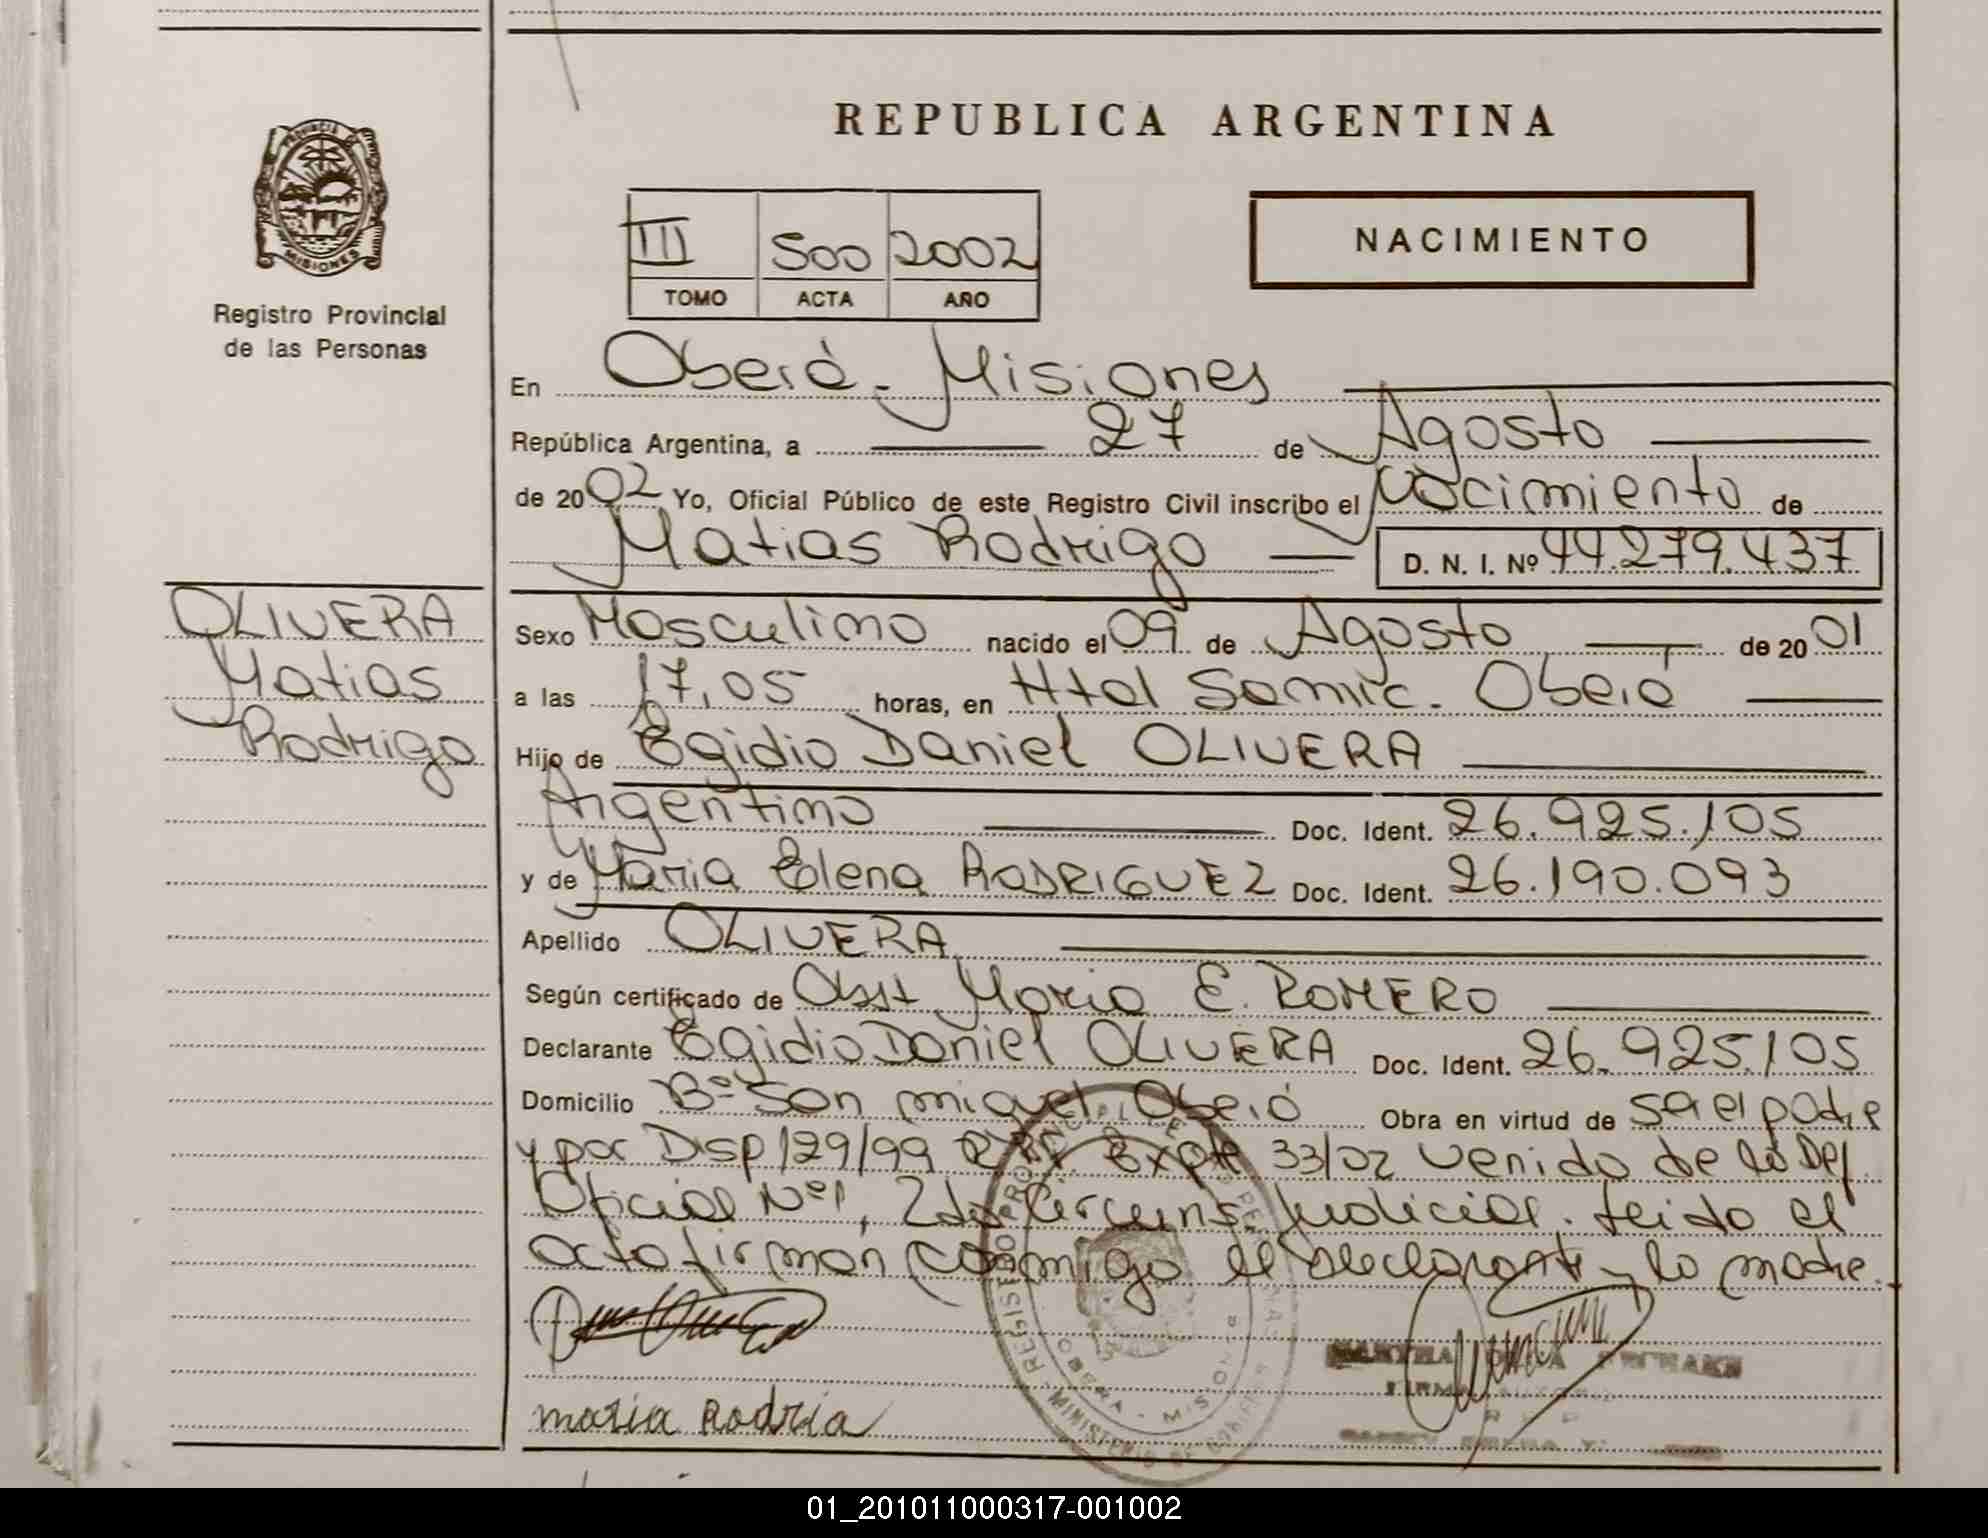 REPUBLICA ARGENTINA
PROVINCIA DE
MISIONES
Registro Provincial
de las Personas
III 500 2002
TOMO ACTA AÑO
NACIMIENTO
En Oberá - Misiones
República Argentina, a 27 de Agosto
de 2002 Yo, Oficial Público de este Registro Civil inscribo el nacimiento de
Matias Rodrigo D. N. I. Nº 44.279.437
OLIVERA
Matias
Rodrigo
Sexo Masculino nacido el 09 de Agosto de 2001
a las 17,05 horas, en Htal Samic. Oberá
Hijo de Egidio Daniel OLIVERA
Argentino Doc. Ident. 26.925.105
y de Maria Elena RODRIGUEZ Doc. Ident. 26.190.093
Apellido OLIVERA
Según certificado de Obst Maria E. ROMERO
Declarante Egidio Daniel OLIVERA Doc. Ident. 26.925.105
Domicilio Bº San miguel. Oberá Obra en virtud de ser el padre
y por Disp 129/99 Expte 33/02 venido de la Def.
Oficial Nº1, 2da Circuns. Judicial. Leido el
acta firman conmigo el declarante y la madre.
maria Rodria
01_201011000317-001002